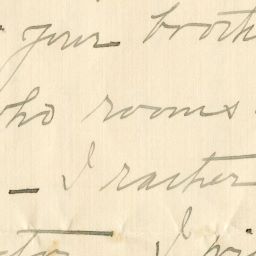 your broth
who rooms
– I rather
I